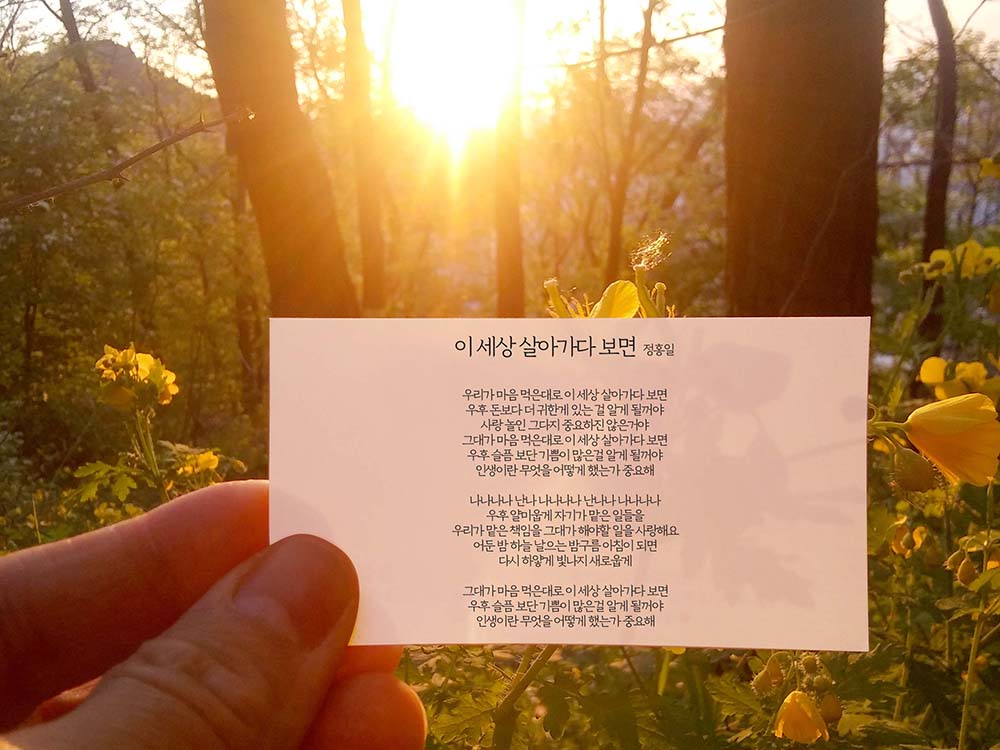 이 세상 살아가다 보면 정홍일
우리가 마음 먹은대로 이 세상 살아가다 보면
우후 돈보다 더 귀한게 있는 걸 알게 될꺼야
사랑 놀인 그다지 중요하진 않은거야
그대가 마음 먹은대로 이 세상 살아가다 보면
우후 슬픔 보단 기쁨이 많은걸 알게 될꺼야
인생이란 무엇을 어떻게 했는가 중요해
나나나나 난나 나나나나 난나나 나나나나
우후 얄미웁게 자기가 맡은 일들을
우리가 맡은 책임을 그대가 해야할 일을 사랑해요
어둔 밤 하늘 날으는 밤구름 아침이 되면
다시 하얗게 빛나지 새로웁게
그대가 마음 먹은대로 이 세상 살아가다 보면
우후 슬픔 보단 기쁨이 많은걸 알게 될꺼야
인생이란 무엇을 어떻게 했는가 중요해